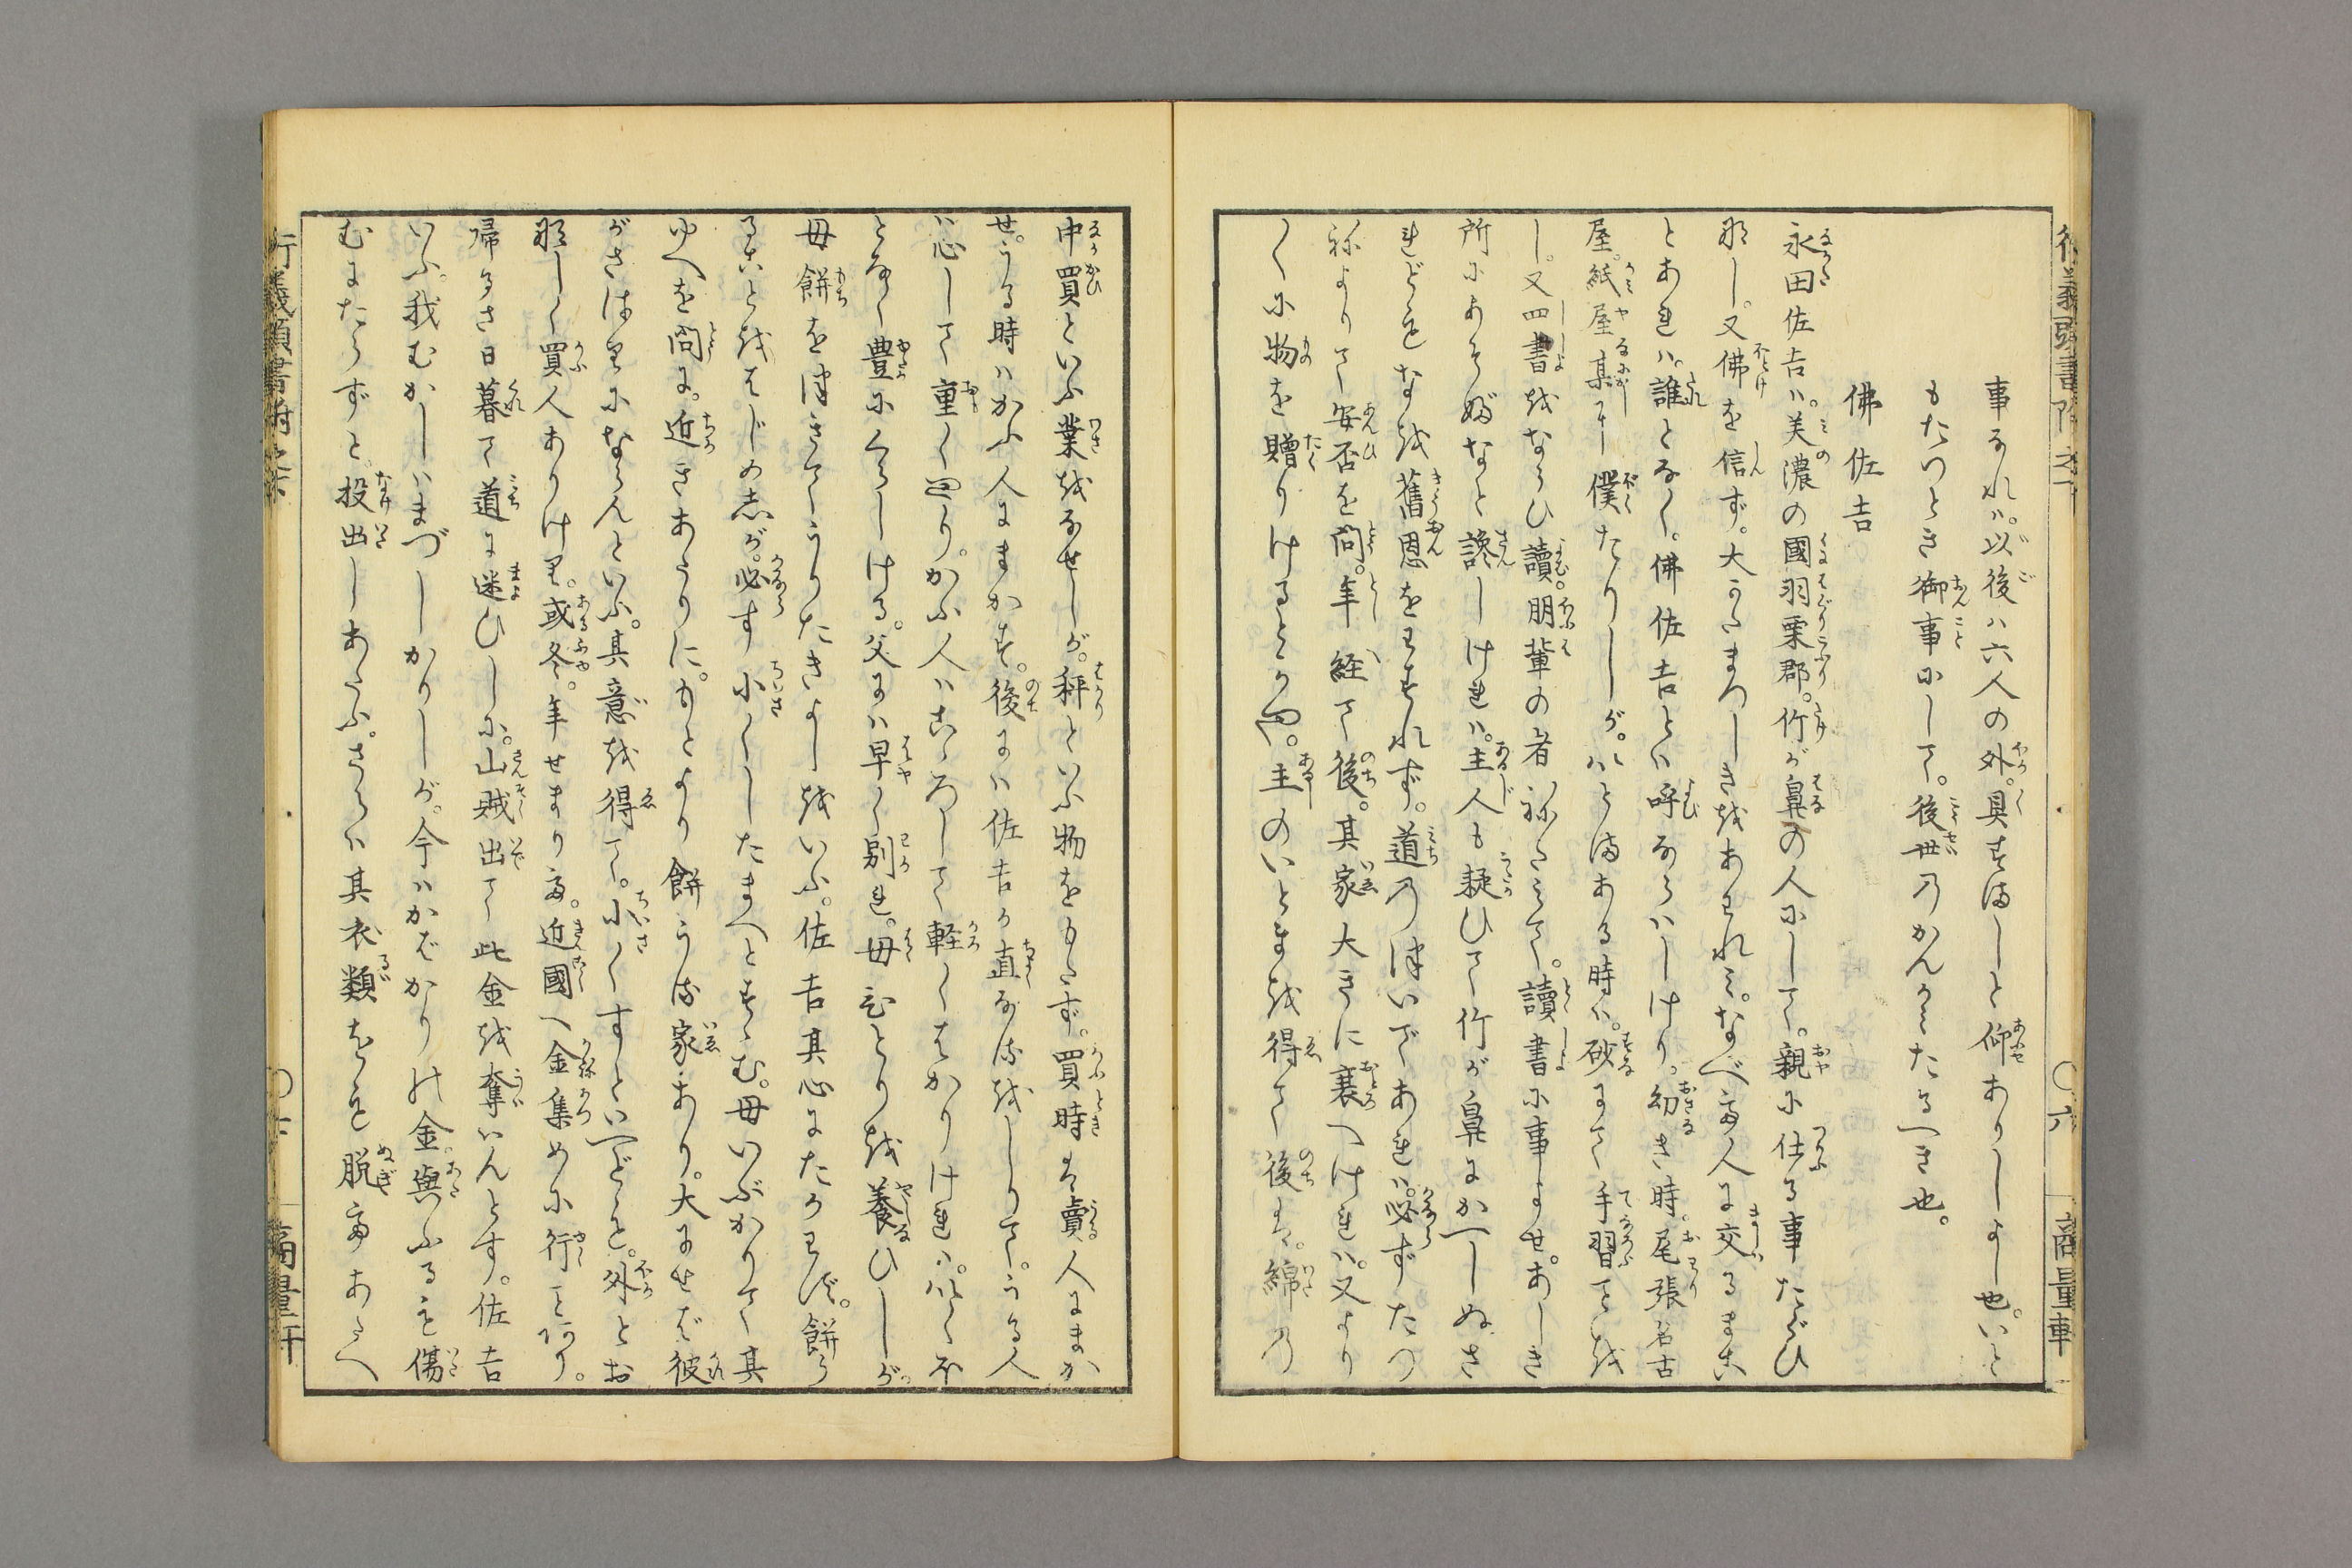 事なれバ。以後ハ六人の外。具すまじと仰ありしよし也。いと
もたつとき御事にして。後世のかんがミたるべき也。
佛佐吉
永田佐吉ハ。美濃の國羽栗郡。竹が鼻の人にして。親に仕る事たぐひ
なし。又佛を信ず。大かたまづしきをあはれミ。なべて人に交るまこ
とあれバ。誰となく。佛佐吉とハ呼ならハしけり。幼き時。尾張名古
屋。紙屋某に僕たりしが。いとまある時ハ。砂にて手習ことを
し。又四書をならひ讀。朋輩の者ねたミて。讀書に事よせ。あしき
所にあそぶなど讒しけれバ。主人も疑ひて竹が鼻にかへしぬ。さ
れどもなを舊恩をわすれず。道のついであれバ。必ずたつ
ねよりて安否を問。年経て後。其家大きに衰へけれバ。又より
〳〵に物を贈りけるとかや。主のいとまを得て後は。綿の
中買といふ業をなせしが。秤といふ物をもたず。買時は賣人にまか
せ。うる時ハかふ人にまかす。後には佐吉が直なるをしりて。うる人
ハ心して重くやり。かふ人ハこゝろして軽くはかりけれバ。いくほ
どなく豊にくらしける。父には早く別れ。母ひとりを養ひしが。
母餅を好きてうりたきよしをいふ。佐吉其心にたがわず。餅う
ることをはじめしが。必す小くしたまへとすゝむ。母いぶかりて其
ゆへを問に。近きあたりに。もとより餅うる家あり。大にせば彼
がさはりにならんといふ。其意を得て。小くすといへども。外とお
なじく買人ありけり。或冬。年せまりて。近國へ金集めに行ことあり。
帰るさ日暮て道に迷ひしに。山賊出て此金を奪ハんとす。佐吉
いふ。我むかしハまづしかりしが。今ハかばかりの金與ふるも傷
むにたらずと。投出しあたふ。さらバ其衣類をもと脱てあたへ
行義頭書附之下
〇六
商量軒